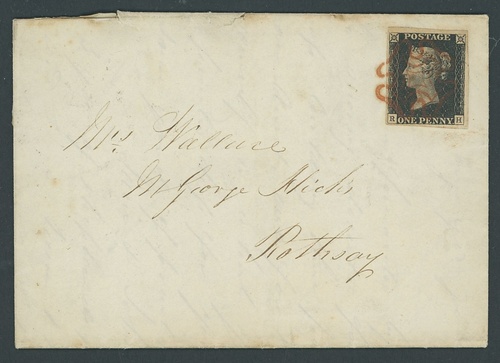 POSTAGE
R H
ONE PENNY
Mrs Wallace
Mr George Hicks
Rothsay